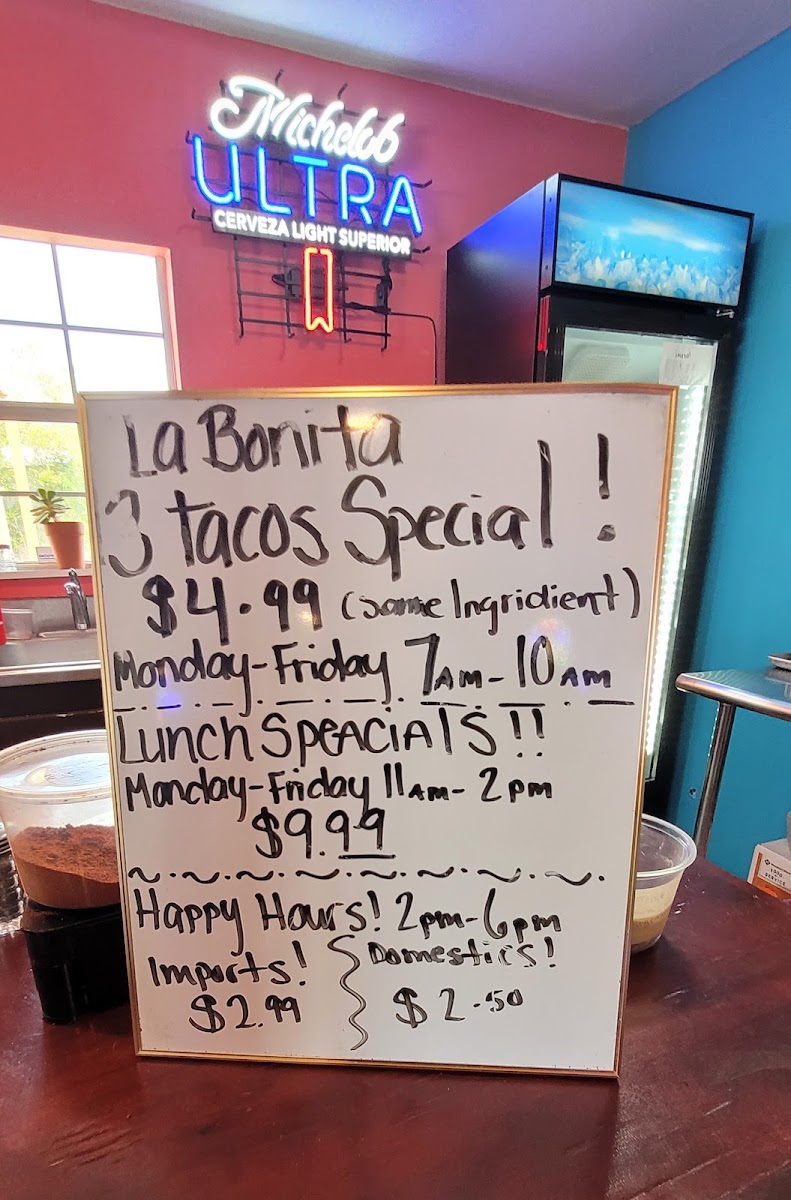 Michelob
ULTRA
CERVEZA LIGHT SUPERIOR
La Bonita
3 tacos Special!
$4.99 (same Ingridient)
Monday-Friday 7AM-10AM
Lunch SPEACIALS!!
Monday-Friday 11AM-2pm
$9.99
Happy Hours! 2pm-6pm
Imports! Domestics!
$2.99 $2.50
FOOD
SERVICE